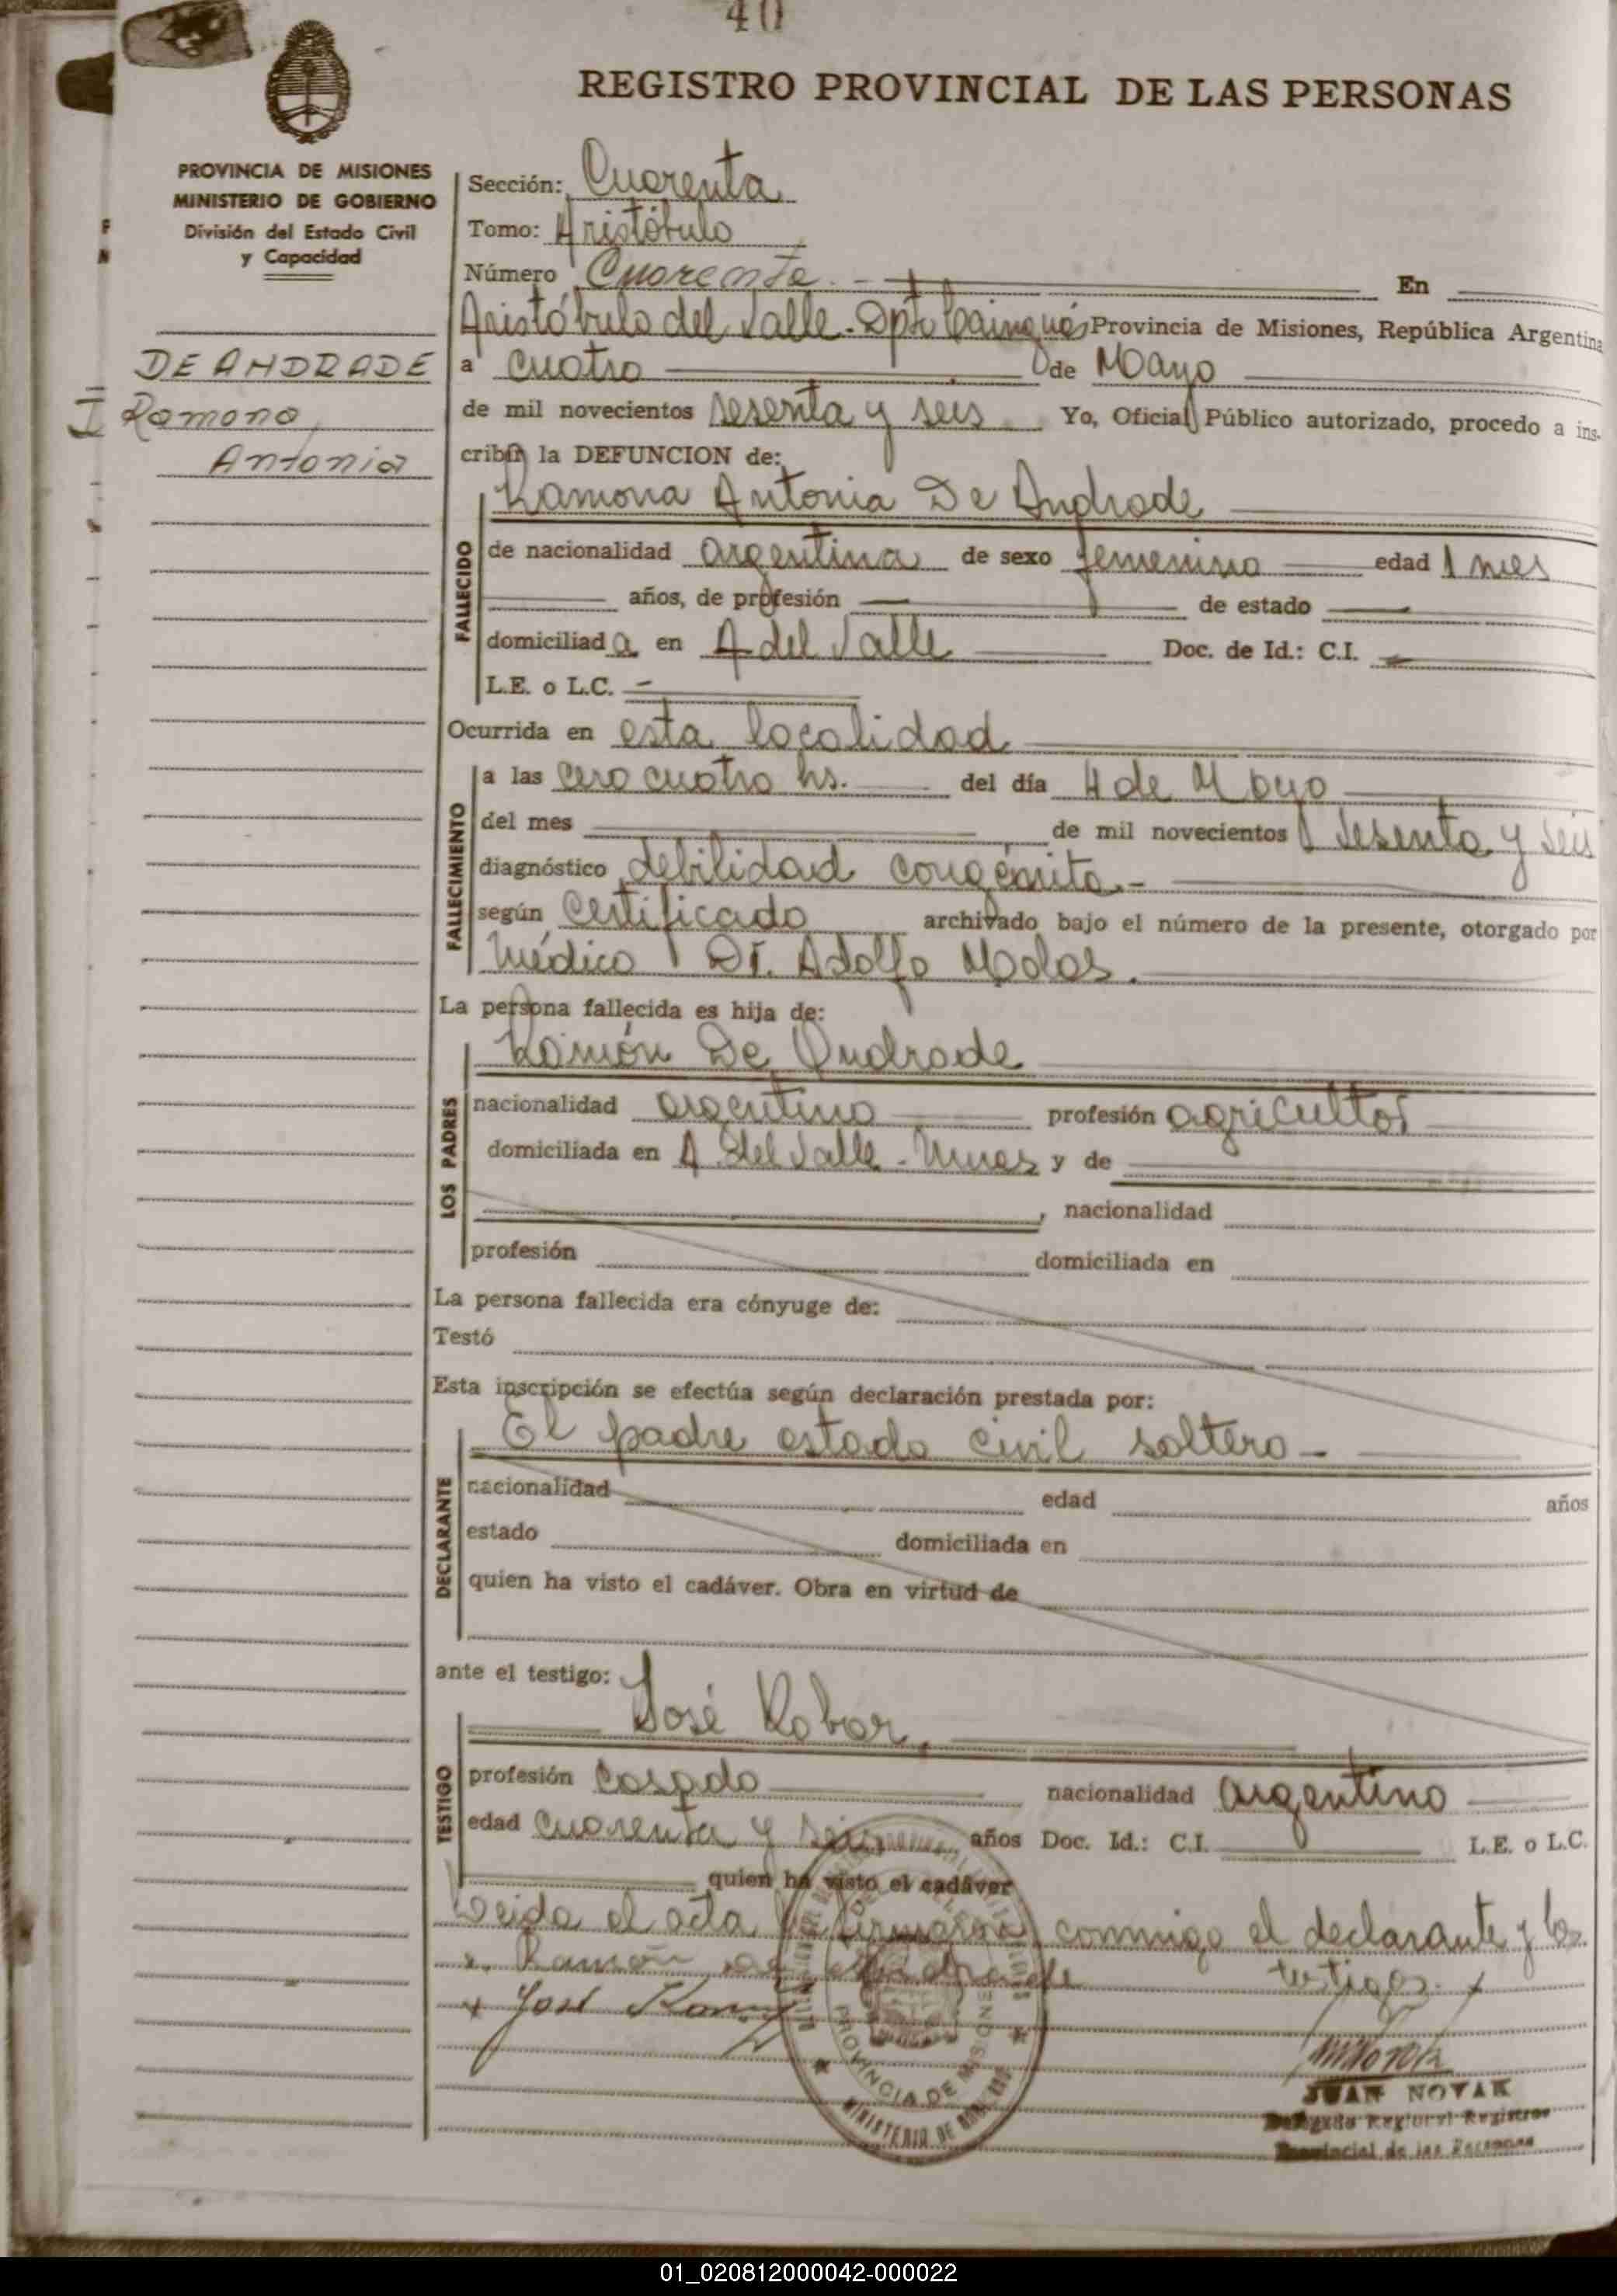 40
REGISTRO PROVINCIAL DE LAS PERSONAS
PROVINCIA DE MISIONES
MINISTERIO DE GOBIERNO
División del Estado Civil
y Capacidad
DE ANDRADE
Ramona
Antonia
Sección: Cuarenta
Tomo: Aristóbulo
Número Cuarenta. En
Aristóbulo del Valle - Dpto Cainguás Provincia de Misiones, República Argentina
a cuatro de Mayo
de mil novecientos sesenta y seis Yo, Oficial Público autorizado, procedo a ins-
cribir la DEFUNCION de:
Ramona Antonia De Andrade
FALLECIDO
de nacionalidad argentina de sexo femenino edad 1 mes
años, de profesión — de estado —
domiciliada en A del Valle Doc. de Id.: C.I. —
L.E. o L.C. —
Ocurrida en esta localidad
FALLECIMIENTO
a las cero cuatro hs. del día 4 de Mayo
del mes de mil novecientos sesenta y seis
diagnóstico debilidad congénita.-
según Certificado archivado bajo el número de la presente, otorgado por
Médico Dr. Adolfo
La persona fallecida es hija de:
Ramón De Andrade
LOS PADRES
nacionalidad argentino profesión agricultor
domiciliada en A del Valle - y de
, nacionalidad
profesión domiciliada en
La persona fallecida era cónyuge de:
Testó
Esta inscripción se efectúa según declaración prestada por:
El padre estado civil soltero -
DECLARANTE
nacionalidad edad años
estado domiciliada en
quien ha visto el cadáver. Obra en virtud de
ante el testigo:
José
TESTIGO
profesión casado nacionalidad argentino
edad cuarenta y años Doc. Id.: C.I. L.E. o L.C.
quien ha visto el cadáver
Leida el acta la firmaron conmigo el declarante y
Ramón de Andrade testigos.
José
PROVINCIA DE MISIONES
MINISTERIO DE
JUAN NOVAK
Delegado Regional Registro
Provincial de las Personas
01_020812000042-000022